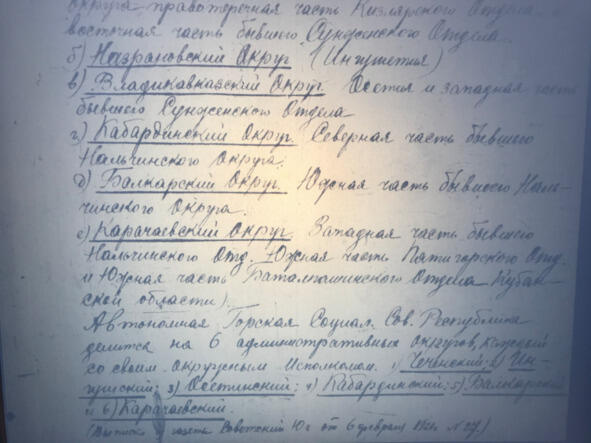 округа правотеречная часть Кизлярского Отдела и
восточная часть бывшего Сунженского Отдела.
б) Назрановский Округ (Ингушетия)
в) Владикавказский Округ Осетия и западная часть
бывшего Сунженского Отдела
г) Кабардинский Округ. Северная часть бывшего
Нальчинского Округа.
д) Балкарский Округ. Южная часть бывшего Наль-
чинского Округа.
е) Карачаевский Округ. Западная часть бывшего
Нальчинского Отд. Южная часть Пятигорского Отд.
и Южная часть Баталпашинского Отдела Кубан-
ской области).
Автономная Горская Социал. Сов. Республика
делится на 6 административных округов, каждый
со своим окружным Исполкомом. 1) Чеченский; 2) Ин-
гушский; 3) Осетинский; 4) Кабардинский; 5) Балкарский
и 6) Карачаевский.
(Выписка газета Советский Юг от 6 февраля 1921 г. № 27)